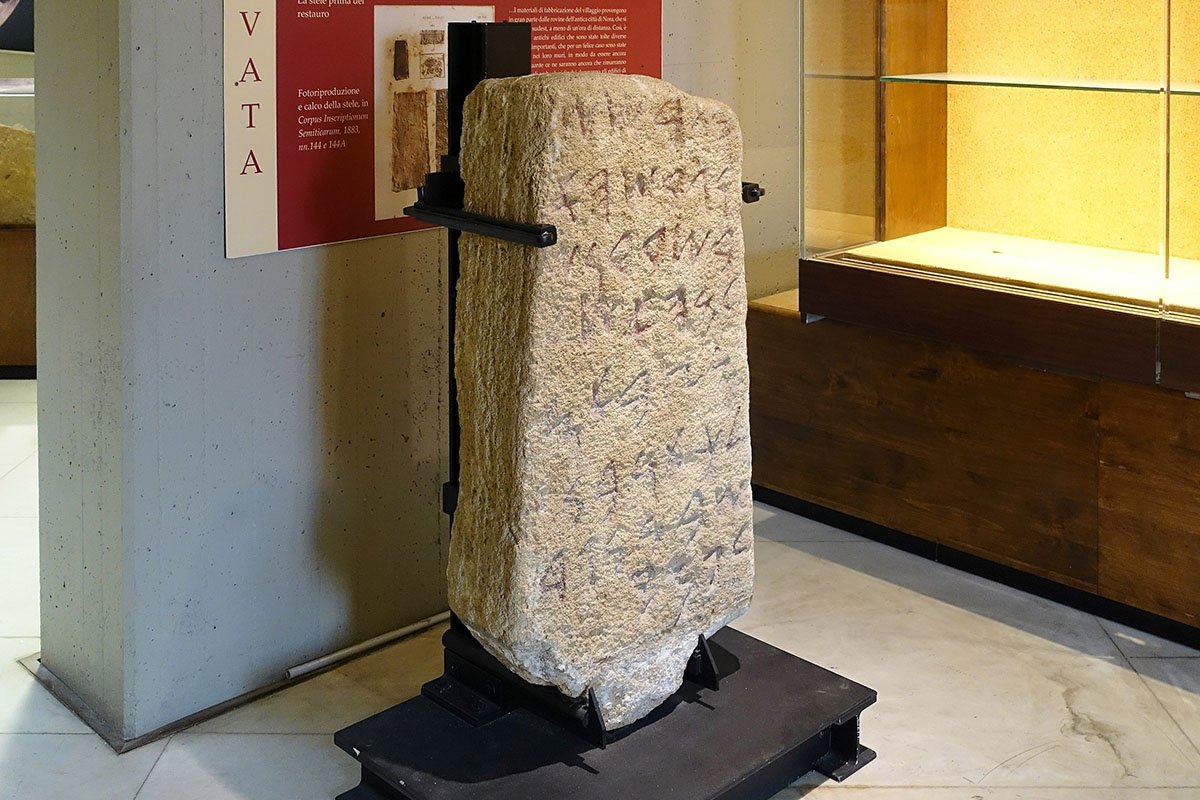 V
A
T
A
La stele prima del
restauro
Fotoriproduzione
e calco della stele, in
Corpus Inscriptionum
Semiticarum, 1883,
nn.144 e 144A
...I materiali di fabbricazione del villaggio provengono
in gran parte dalle rovine dell'antica città di Nora, che si
sudest, a meno di un'ora di distanza. Così, è
antichi edifici che sono state tolte diverse
importanti, che per un felice caso sono state
nei loro muri, in modo da essere ancora
ce ne saranno ancora che rimarranno
gli edifici di
𐤁𐤕𐤓𐤔𐤔
𐤅𐤂𐤓𐤔𐤄𐤀
𐤁𐤔𐤓𐤃𐤍𐤔
𐤋𐤌𐤄𐤀𐤔𐤋
𐤌𐤑𐤁𐤀𐤌
𐤋𐤊𐤕𐤍𐤁𐤍
𐤔𐤁𐤍𐤍𐤂𐤃
𐤋𐤐𐤌𐤉